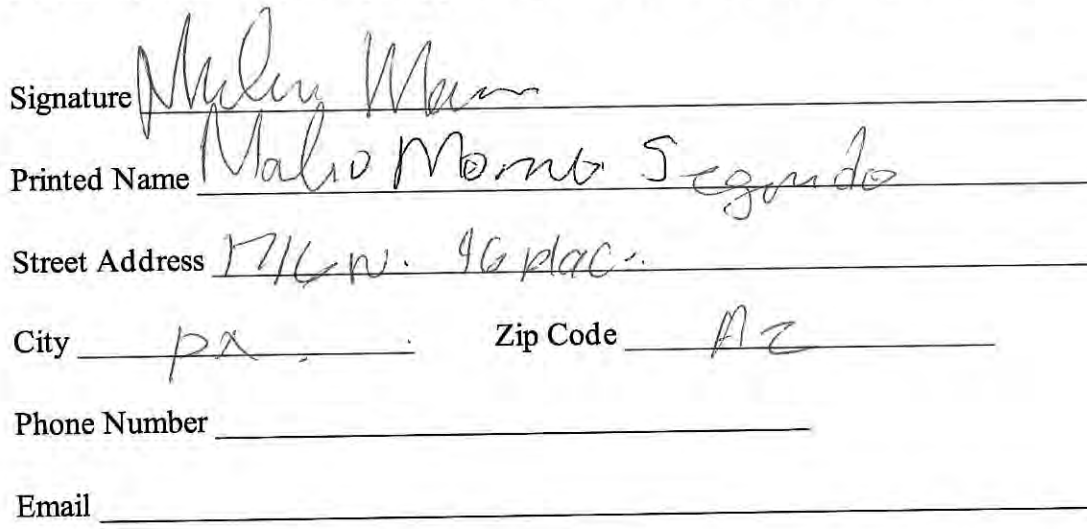 Signature
Printed Name Malio Momo Segundo
Street Address 1716 N. 46 plac.
City px. Zip Code AZ
Phone Number
Email